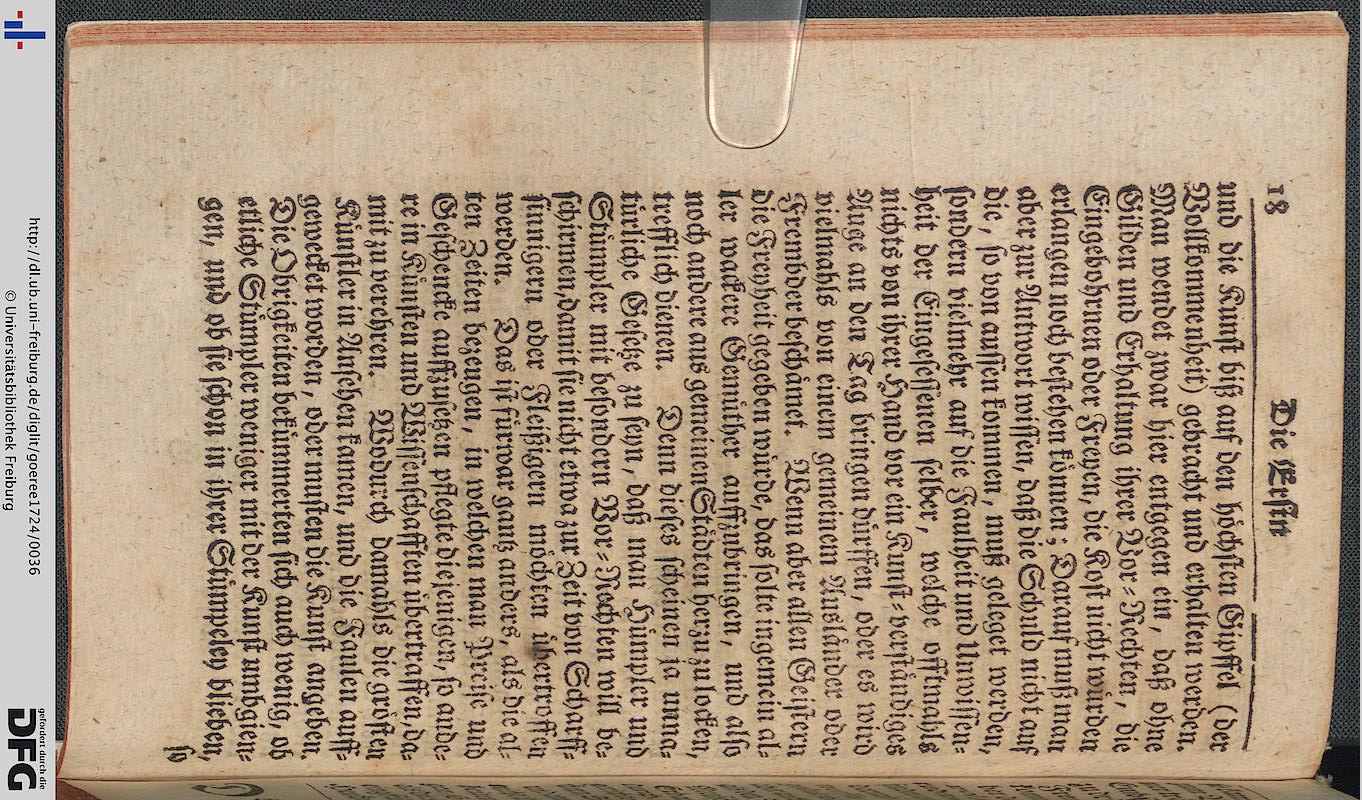 18 Die Erste
und die Kunst biß auf den höchsten Gipffel (der
Vollkommenheit) gebracht und erhalten werden.
Man wendet zwar hier entgegen ein, daß ohne
Gilden und Erhaltung ihrer Vor-Rechten, die
Eingebohrnen oder Freyen, die Kost nicht würden
erlangen noch bestehen können; Darauf muß man
aber zur Antwort wissen, daß die Schuld nicht auf
die, so von aussen kommen, muß geleget werden,
sondern vielmehr auf die Faulheit und Unwissen-
heit der Eingesessenen selber, welche offtmahls
nichts von ihrer Hand vor ein Kunst-verständiges
Auge an den Tag bringen dürffen, oder es wird
vielmahls von einem gemeinem Ausländer oder
Frembder beschämet. Wenn aber allen Geistern
die Freyheit gegeben würde, das solte ingemein al-
ler wakere Gemüther auffzubringen, und also
noch andere aus gemeinen Städen herzu zu locken,
trefflich dienen. Denn dieses scheinen ja unna-
türliche Gesetze zu seyn, daß man Hümpler und
Stümpler mit besondern Vor-Rechten will be-
schirmen, damit sie nicht etwa zur Zeit von Scharff-
sinnigern oder Fleißigern möchten übertroffen
werden. Das ist fürwar gantz anders, als die al-
ten Zeiten bezeugen, in welchen man Preise und
Geschencke auffzusetzen pflegte diejenigen, so ande-
re in Künsten und Wissenschafften übertraffen, da-
mit zu verehren. Wodurch damahls die grösten
Künstler in Ansehen kamen, und die Faulen auff-
gewecket worden, oder musten die Kunst angeben.
Die Obrigkeiten bekümmerten sich auch wenig, ob
etliche Stümpler weniger mit der Kunst umbgien-
gen, und ob sie schon in ihrer Stümpeley blieben,
so
http://dl.ub.uni-freiburg.de/diglit/goeree1724/0036
© Universitätsbibliothek Freiburg
gefördert durch die
DFG